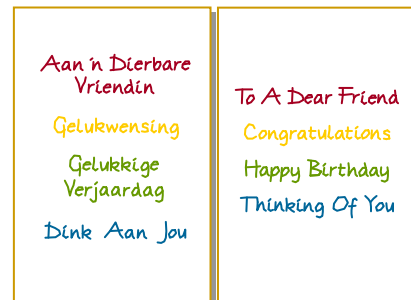 Aan 'n Dierbare
Vriendin
Gelukwensing
Gelukkige
Verjaardag
Dink Aan Jou
To A Dear Friend
Congratulations
Happy Birthday
Thinking Of You